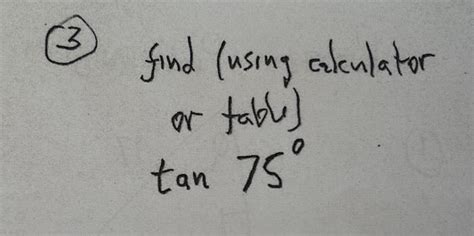 3 find (using calculator
or table)
tan 75°